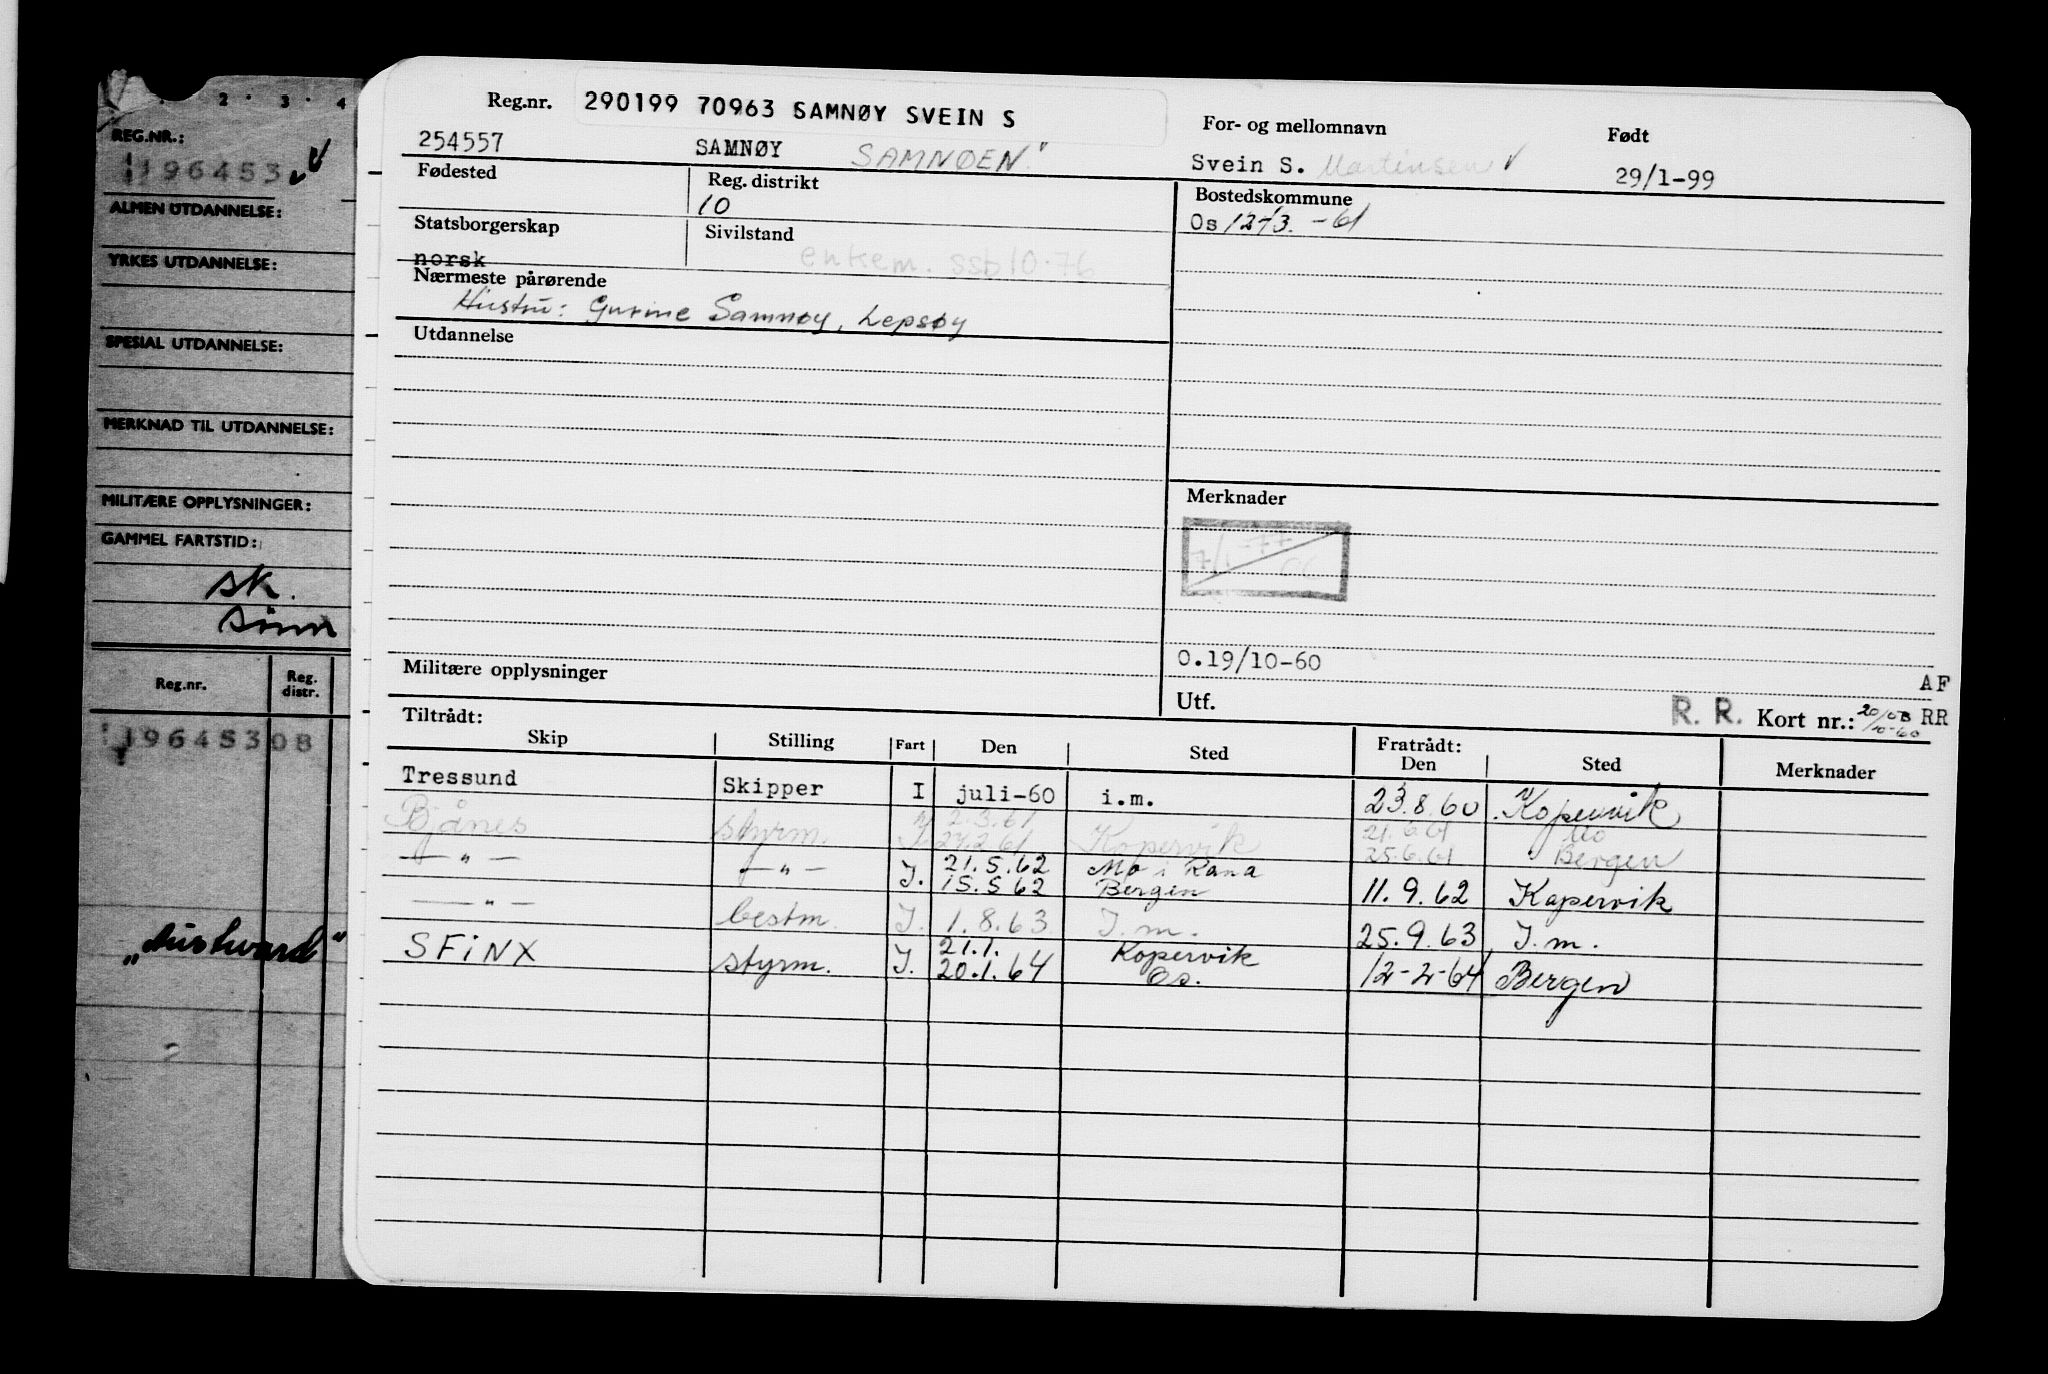 2 · 3 · 4
REG.NR.:
196453
ALMEN UTDANNELSE:
YRKES UTDANNELSE:
SPESIAL UTDANNELSE:
MERKNAD TIL UTDANNELSE:
MILITÆRE OPPLYSNINGER:
GAMMEL FARTSTID:
sk.
Reg.nr. Reg. distr.
19645308
Reg.nr. 290199 70963 SAMNØY SVEIN S
For- og mellomnavn Født
254557 SAMNØY SAMNØEN
Svein S. Martinsen 29/1-99
Fødested Reg. distrikt Bostedskommune
10 Os 12/3.-61
Statsborgerskap Sivilstand
norsk enkem. ssb 10.76
Nærmeste pårørende
Hustru: Gurine Samnøy, Lepsøy
Utdannelse
Merknader
7/1-77
0.19/10-60
Militære opplysninger
AF
Utf. R. R. Kort nr.: RR
Tiltrådt: Fratrådt:
Skip Stilling Fart Den Sted Den Sted Merknader
Tressund Skipper I juli-60 i.m. 23.8.60 Kopervik
Bjånes styrm. 2.3.61 21.6.61 Mo
27.2.61 Kopervik 25.6.61 Bergen
—"— —"— I. 21.5.62 Mo i Rana
15.5.62 Bergen 11.9.62 Kopervik
—"— bestm. I. 1.8.63 I.m. 25.9.63 I.m.
SFINX styrm. I. 21.1. Kopervik
20.1.64 Os. 12-2-64 Bergen